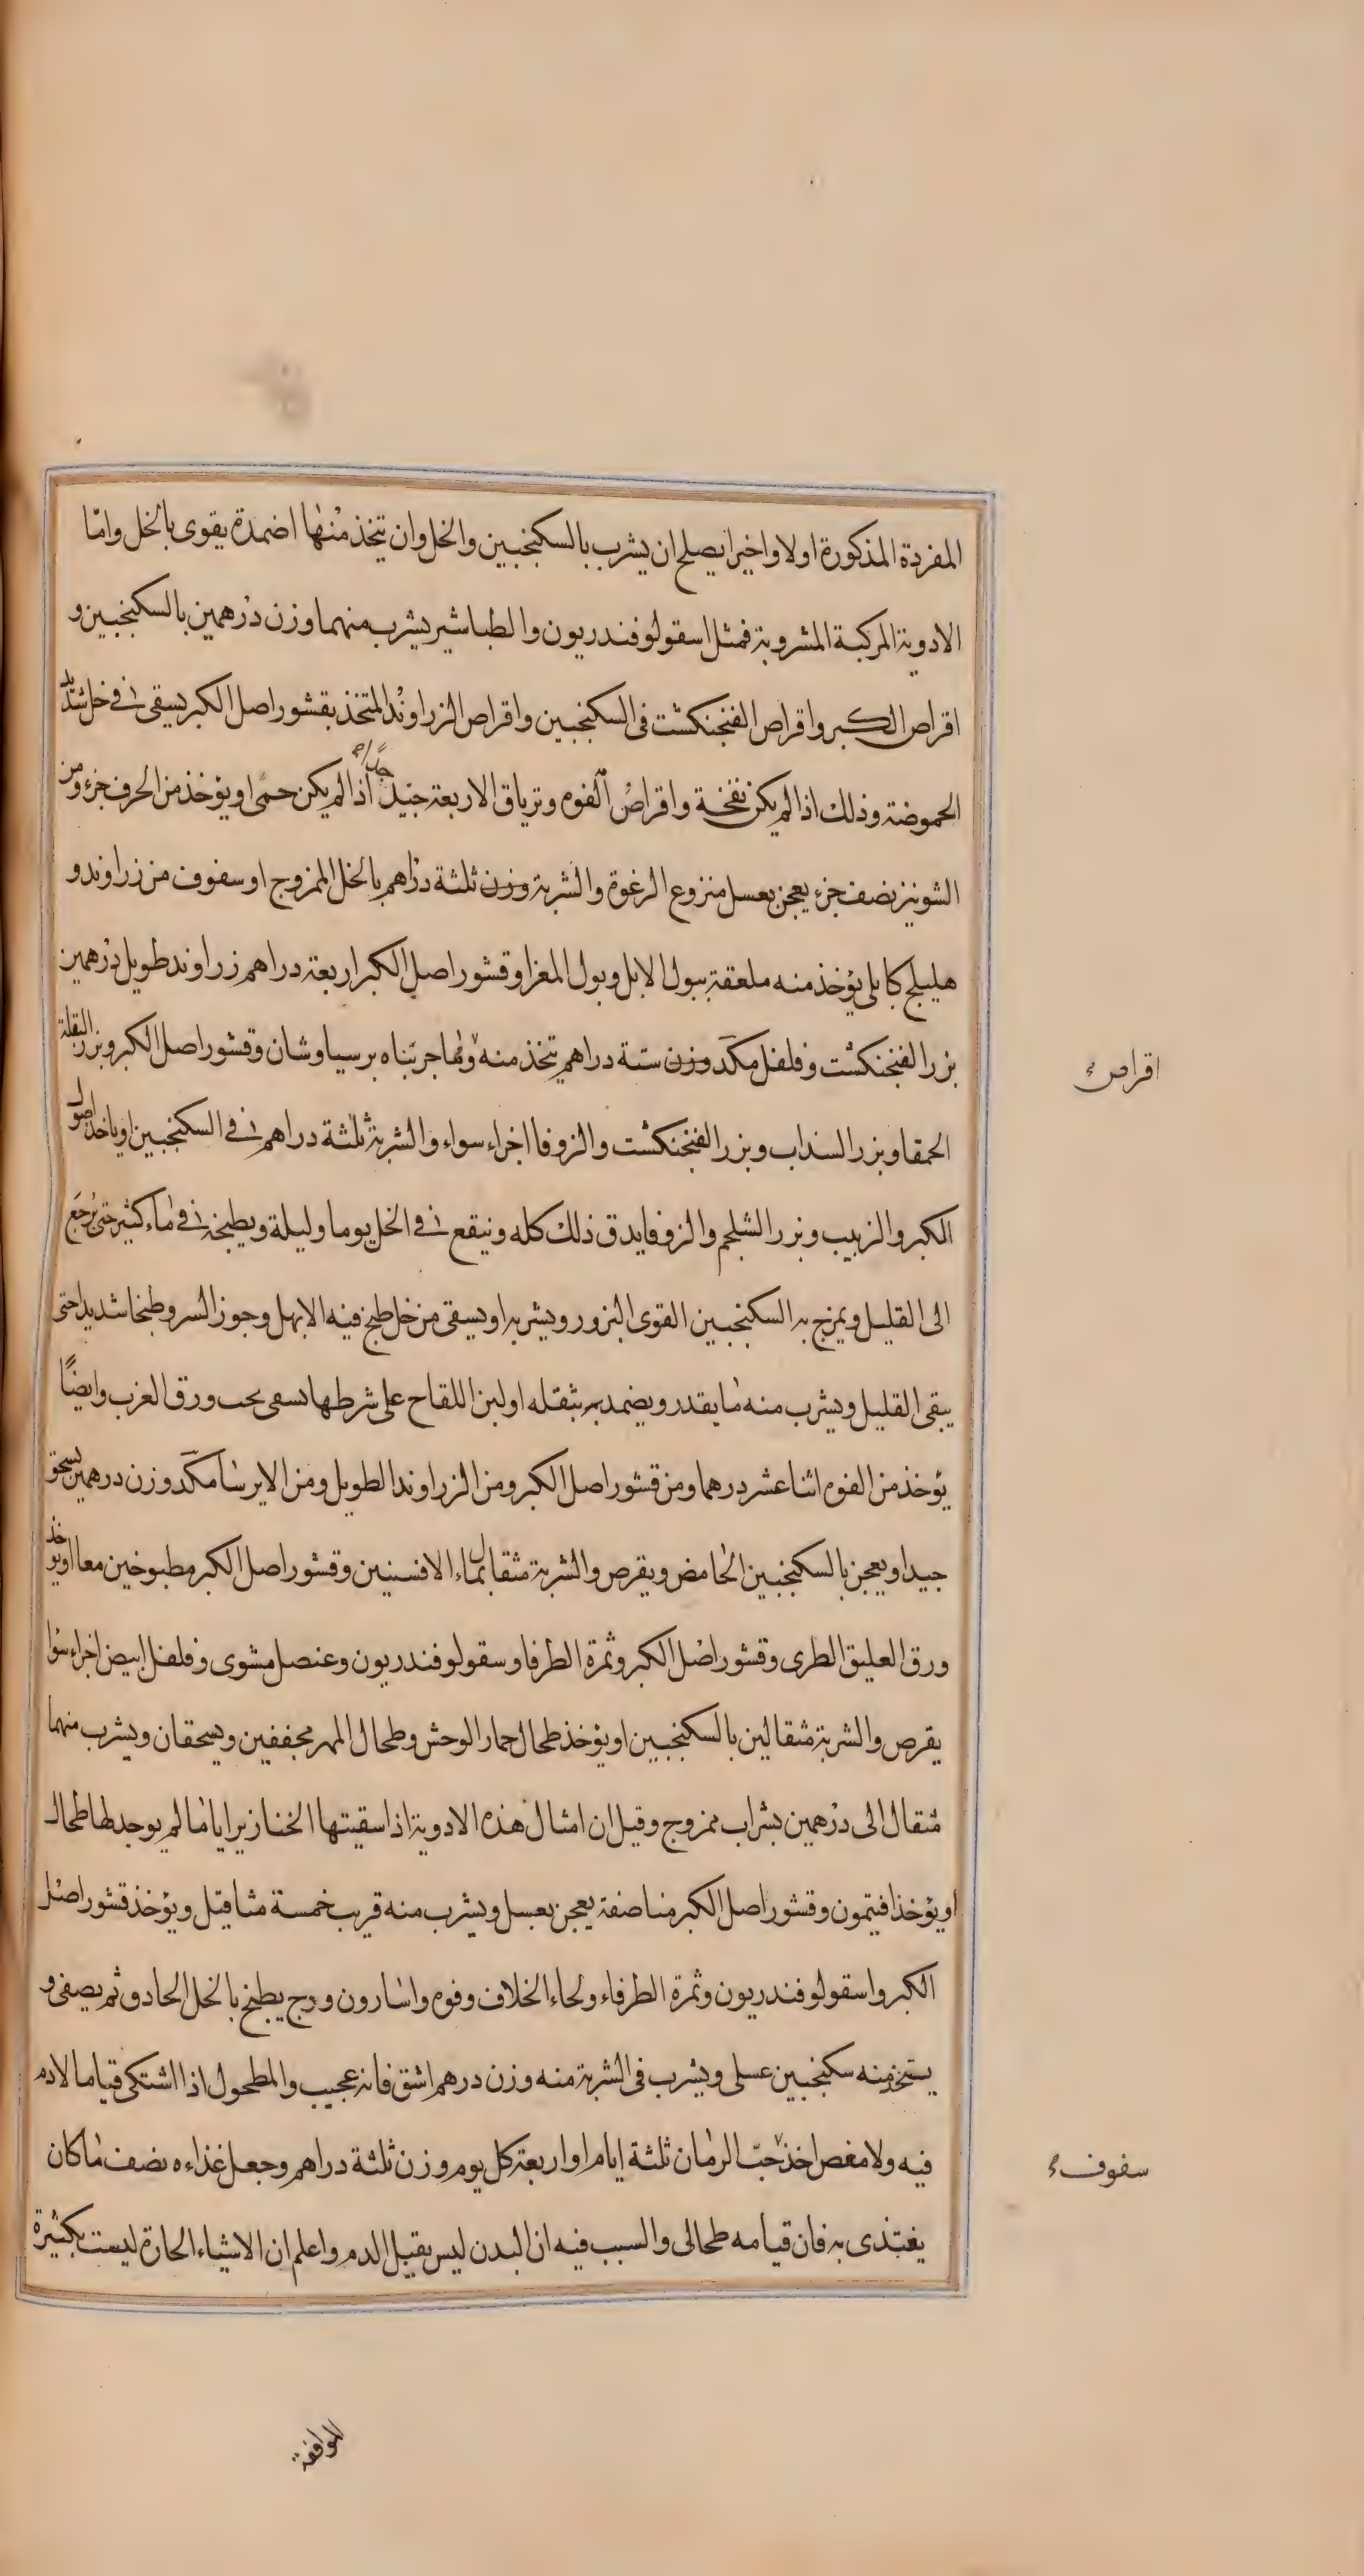 المفردة المذكورة اولا واخيرا يصلح ان يشرب بالسكنجبين والخل وان يتخذ منها اضمدة يقوى بالخل وامّا
الادوية المركبة المشروبة فمثل اسقولوفندريون والطباشير يشرب منهما وزن درهمين بالسكنجبين و
اقراص الكبر واقراص الفنجنكشت فى السكنجبين واقراص الزراوند المتخذ بقشور اصل الكبر يسقى فى خل شديد
الحموضة وذلك اذا لم يكن نفخة واقراص الفوه وترياق الاربعة جيد جدًا اذا لم يكن حمى او يؤخذ من الحرف جزء ومن
الشونيز نصف جزء يعجن بعسل منزوع الرغوة والشربة وزن ثلثة دراهم بالخل الممزوج او سفوف من زراوند و
هليلج كابلى يؤخذ منه ملعقة ببول الابل وبول المعز او قشور اصل الكبر اربعة دراهم زراوند طويل درهمين
بزر الفنجنكشت وفلفل مكد وزن ستة دراهم تتخذ منه ومما جربناه برسياوشان وقشور اصل الكبر وبزر البقلة
الحمقا وبزر السنداب وبزر الفنجنكشت والزوفا اجزاء سواء والشربة ثلثة دراهم فى السكنجبين او ياخذ اصول
الكبر والزبيب وبزر الشلجم والزوفا يدق ذلك كله وينقع فى الخل يوما وليلة ويطبخه فى ماء كثير حتى يرجع
الى القليل ويمزج به السكنجبين القوى البزور ويشربه او يسقى من خل طبخ فيه الابهل وجوز السرو طبخا شديدا حتى
يبقى القليل ويشرب منه ما يقدر ويضمد به بثقله او لبن اللقاح على شرطها تسقى تحت ورق الغرب وايضًا
يؤخذ من الفوه اثنا عشر درهما ومن قشور اصل الكبر ومن الزراوند الطويل ومن الايرسا مكد وزن درهمين يسحق
جيدا ويعجن بالسكنجبين الحامض ويقرص والشربة مثقال بماء الافسنتين وقشور اصل الكبر مطبوخين معا او يؤخذ
ورق العليق الطرى وقشور اصل الكبر وثمرة الطرفا وسقولوفندريون وعنصل مشوى وفلفل ابيض اجزاء سوا
يقرص والشربة مثقالين بالسكنجبين او يؤخذ طحال حمار الوحش وطحال المهر مجففين ويسحقان ويشرب منهما
مثقال الى درهمين بشراب ممزوج وقيل ان امثال هذه الادوية اذا سقيتها الخنازير اياما لم يوجد لها طحال
او يؤخذ افتيمون وقشور اصل الكبر مناصفة يعجن بعسل ويشرب منه قريب خمسة مثاقيل ويؤخذ قشور اصل
الكبر واسقولوفندريون وثمرة الطرفاء ولحاء الخلاف وفوه واسارون ووج يطبخ بالخل الحاذق ثم يصفى و
يتخذ منه سكنجبين عسلى ويشرب فى الشربة منه وزن درهم اشق فانه عجيب والمطحول اذا اشتكى قياما لادم
فيه ولا مغص اخذ حبّ الرمان ثلثة ايام او اربعة كل يوم وزن ثلثة دراهم وجعل غذاءه نصف ما كان
يغتذى به فان قيامه طحالى والسبب فيه ان البدن ليس يقبل الدم واعلم ان الاشياء الحارة ليست بكثيرة
اقراص
سفوف
الموافقة